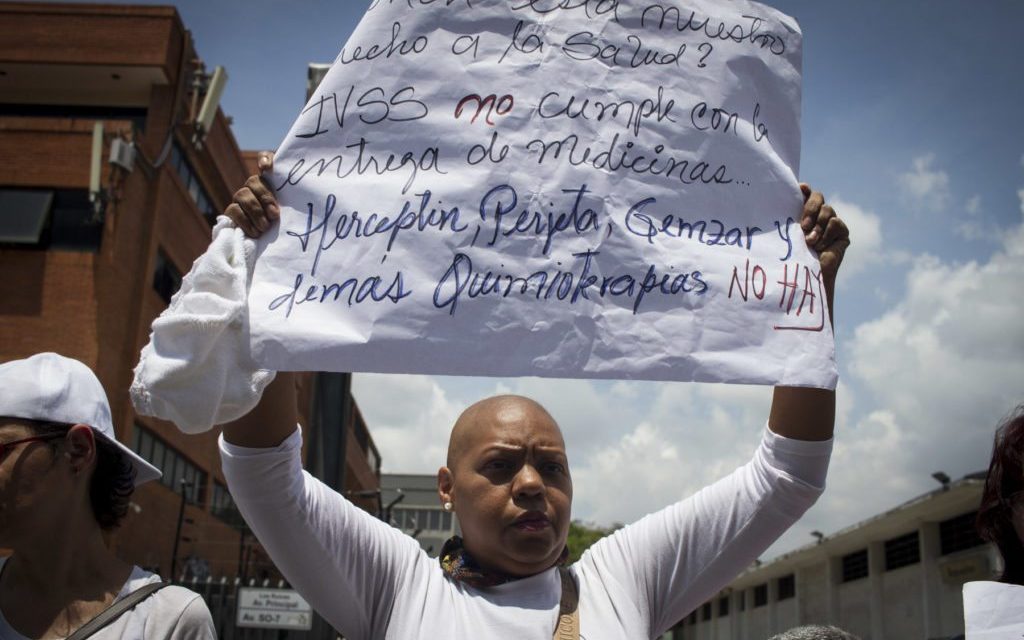 está nuestro
echo a la Salud?
IVSS no cumple con la
entrega de medicinas...
Herceptin, Perjeta, Gemzar y
demás Quimioterapias NO HAY
Los Ruices
Av. Principal
Av. SO-7